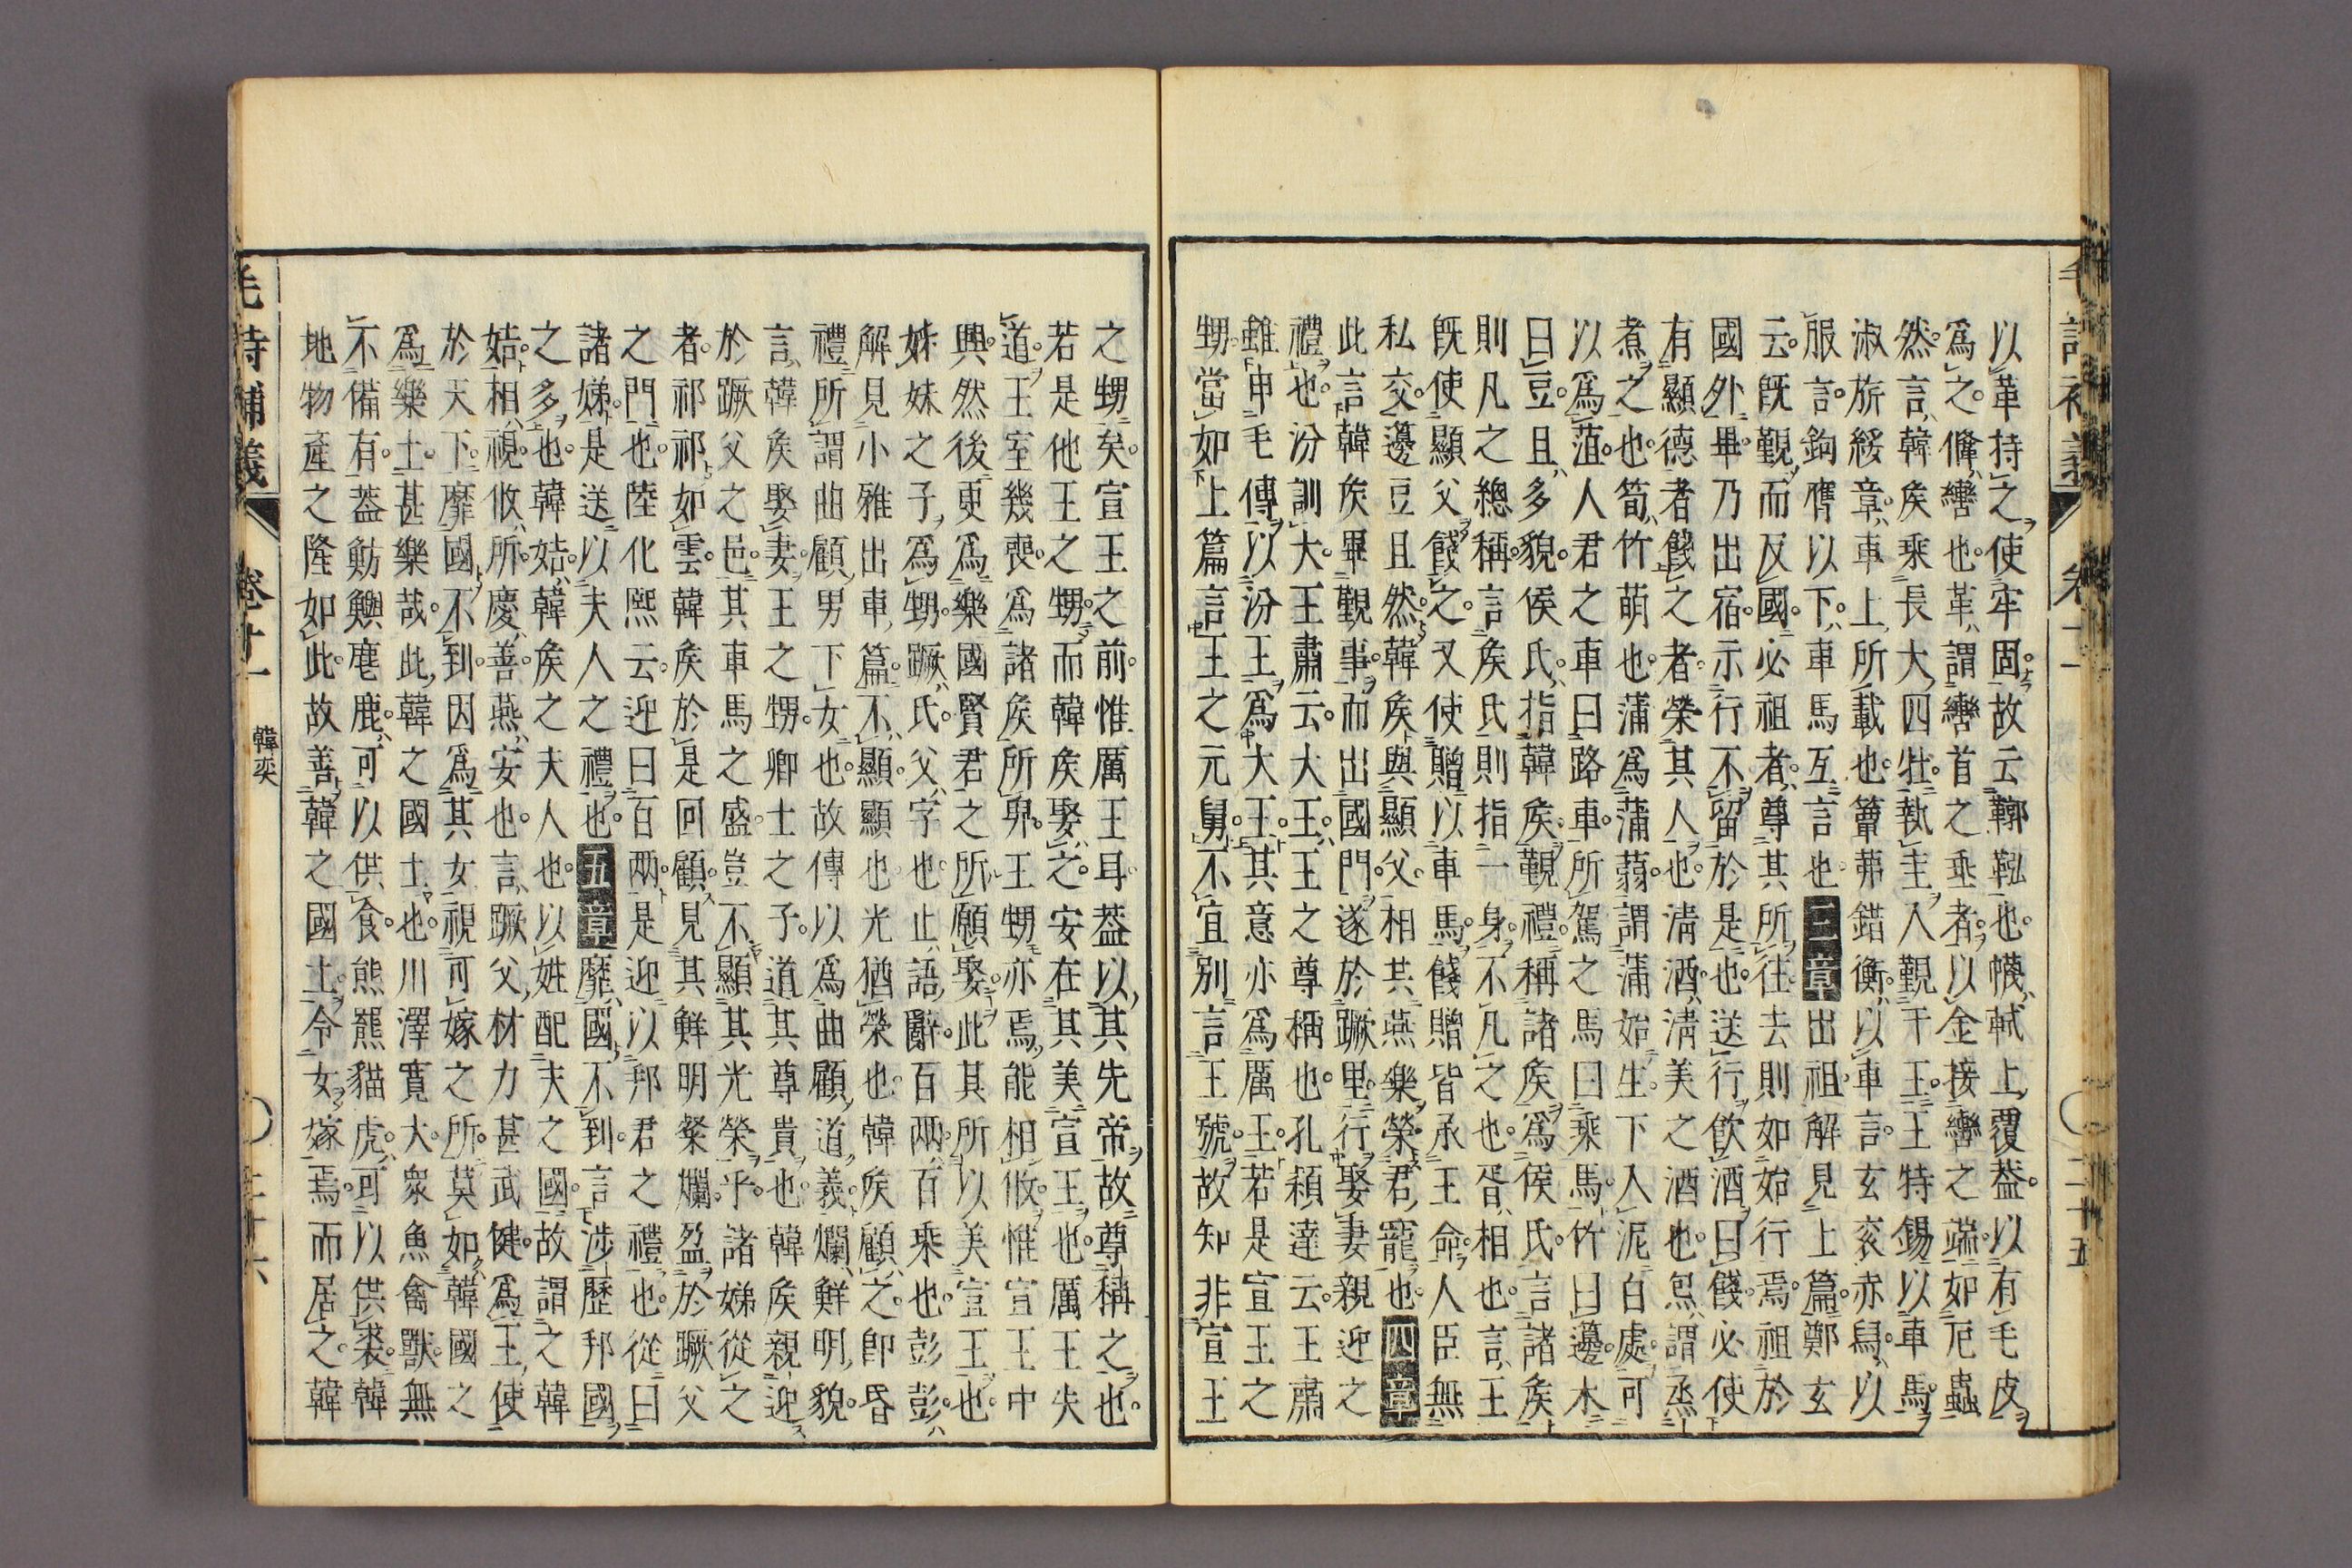 以革持之使牢固故云鞹鞃也幭軾上覆葢以有毛皮
爲之鞗轡也革謂轡首之垂者以金接轡之端如厄蟲
然言韓矦乘長大四牡執圭入覲于王王特錫以車馬
淑旂綏章車上所載也簟茀錯衡以車言玄衮赤舄以
服言鉤膺以下車馬互言也三章出祖解見上篇鄭玄
云旣覲而反國必祖者尊其所往去則如始行焉祖於
國外畢乃出宿示行不留於是也送行飮酒曰餞必使
有顯德者餞之者榮其人也淸酒淸美之酒也炰謂烝
煮之也筍竹萌也蒲爲蒲蒻謂蒲始生下入泥白處可
以爲菹人君之車曰路車所駕之馬曰乘馬竹曰籩木
曰豆且多貌侯氏指韓矦覲禮稱諸矦爲侯氏言諸矦
則凡之總稱言矦氏則指一身不凡之也胥相也言王
旣使顯父餞之又使贈以車馬餞贈皆承王命人臣無
私交籩豆且然韓矦與顯父相共燕樂榮君寵也四章
此言韓矦畢覲事而出國門遂於蹶里行娶妻親迎之
禮也汾訓大王肅云大王王之尊稱也孔穎達云王肅
雖申毛傳以汾王爲大王其意亦爲厲王若是宣王之
甥當如上篇言王之元舅不宜別言王號故知非宣王
之甥矣宣王之前惟厲王耳葢以其先帝故尊稱之也
若是他王之甥而韓矦娶之安在其美宣王也厲王失
道王室幾喪爲諸矦所卑王甥亦焉能相攸惟宣王中
興然後更爲樂國賢君之所願娶此其所以美宣王也
姊妹之子爲甥蹶氏父字也止語辭百兩百乘也彭彭
解見小雅出車篇不顯顯也光猶榮也韓矦顧之卽昏
禮所謂曲顧男下女也故傳以爲曲顧道義爛鮮明貌
言韓矦娶妻王之甥卿士之子道其尊貴也韓矦親迎
於蹶父之邑其車馬之盛豈不顯其光榮乎諸娣從之
者祁祁如雲韓矦於是回顧見其鮮明粲爛盈於蹶父
之門也陸化熙云迎曰百兩是迎以邦君之禮也從曰
諸娣是送以夫人之禮也五章靡國不到言涉歷邦國
之多也韓姞韓矦之夫人也以姓配夫之國故謂之韓
姞相視攸所慶善燕安也言蹶父材力甚武健爲王使
於天下靡國不到因爲其女視可嫁之所莫如韓國之
爲樂土甚樂哉此韓之國土也川澤寬大衆魚禽獸無
不備有葢魴鱮麀鹿可以供食熊羆貓虎可以供裘韓
地物產之隆如此故善韓之國土令女嫁焉而居之韓
毛詩補義
卷十一
韓奕